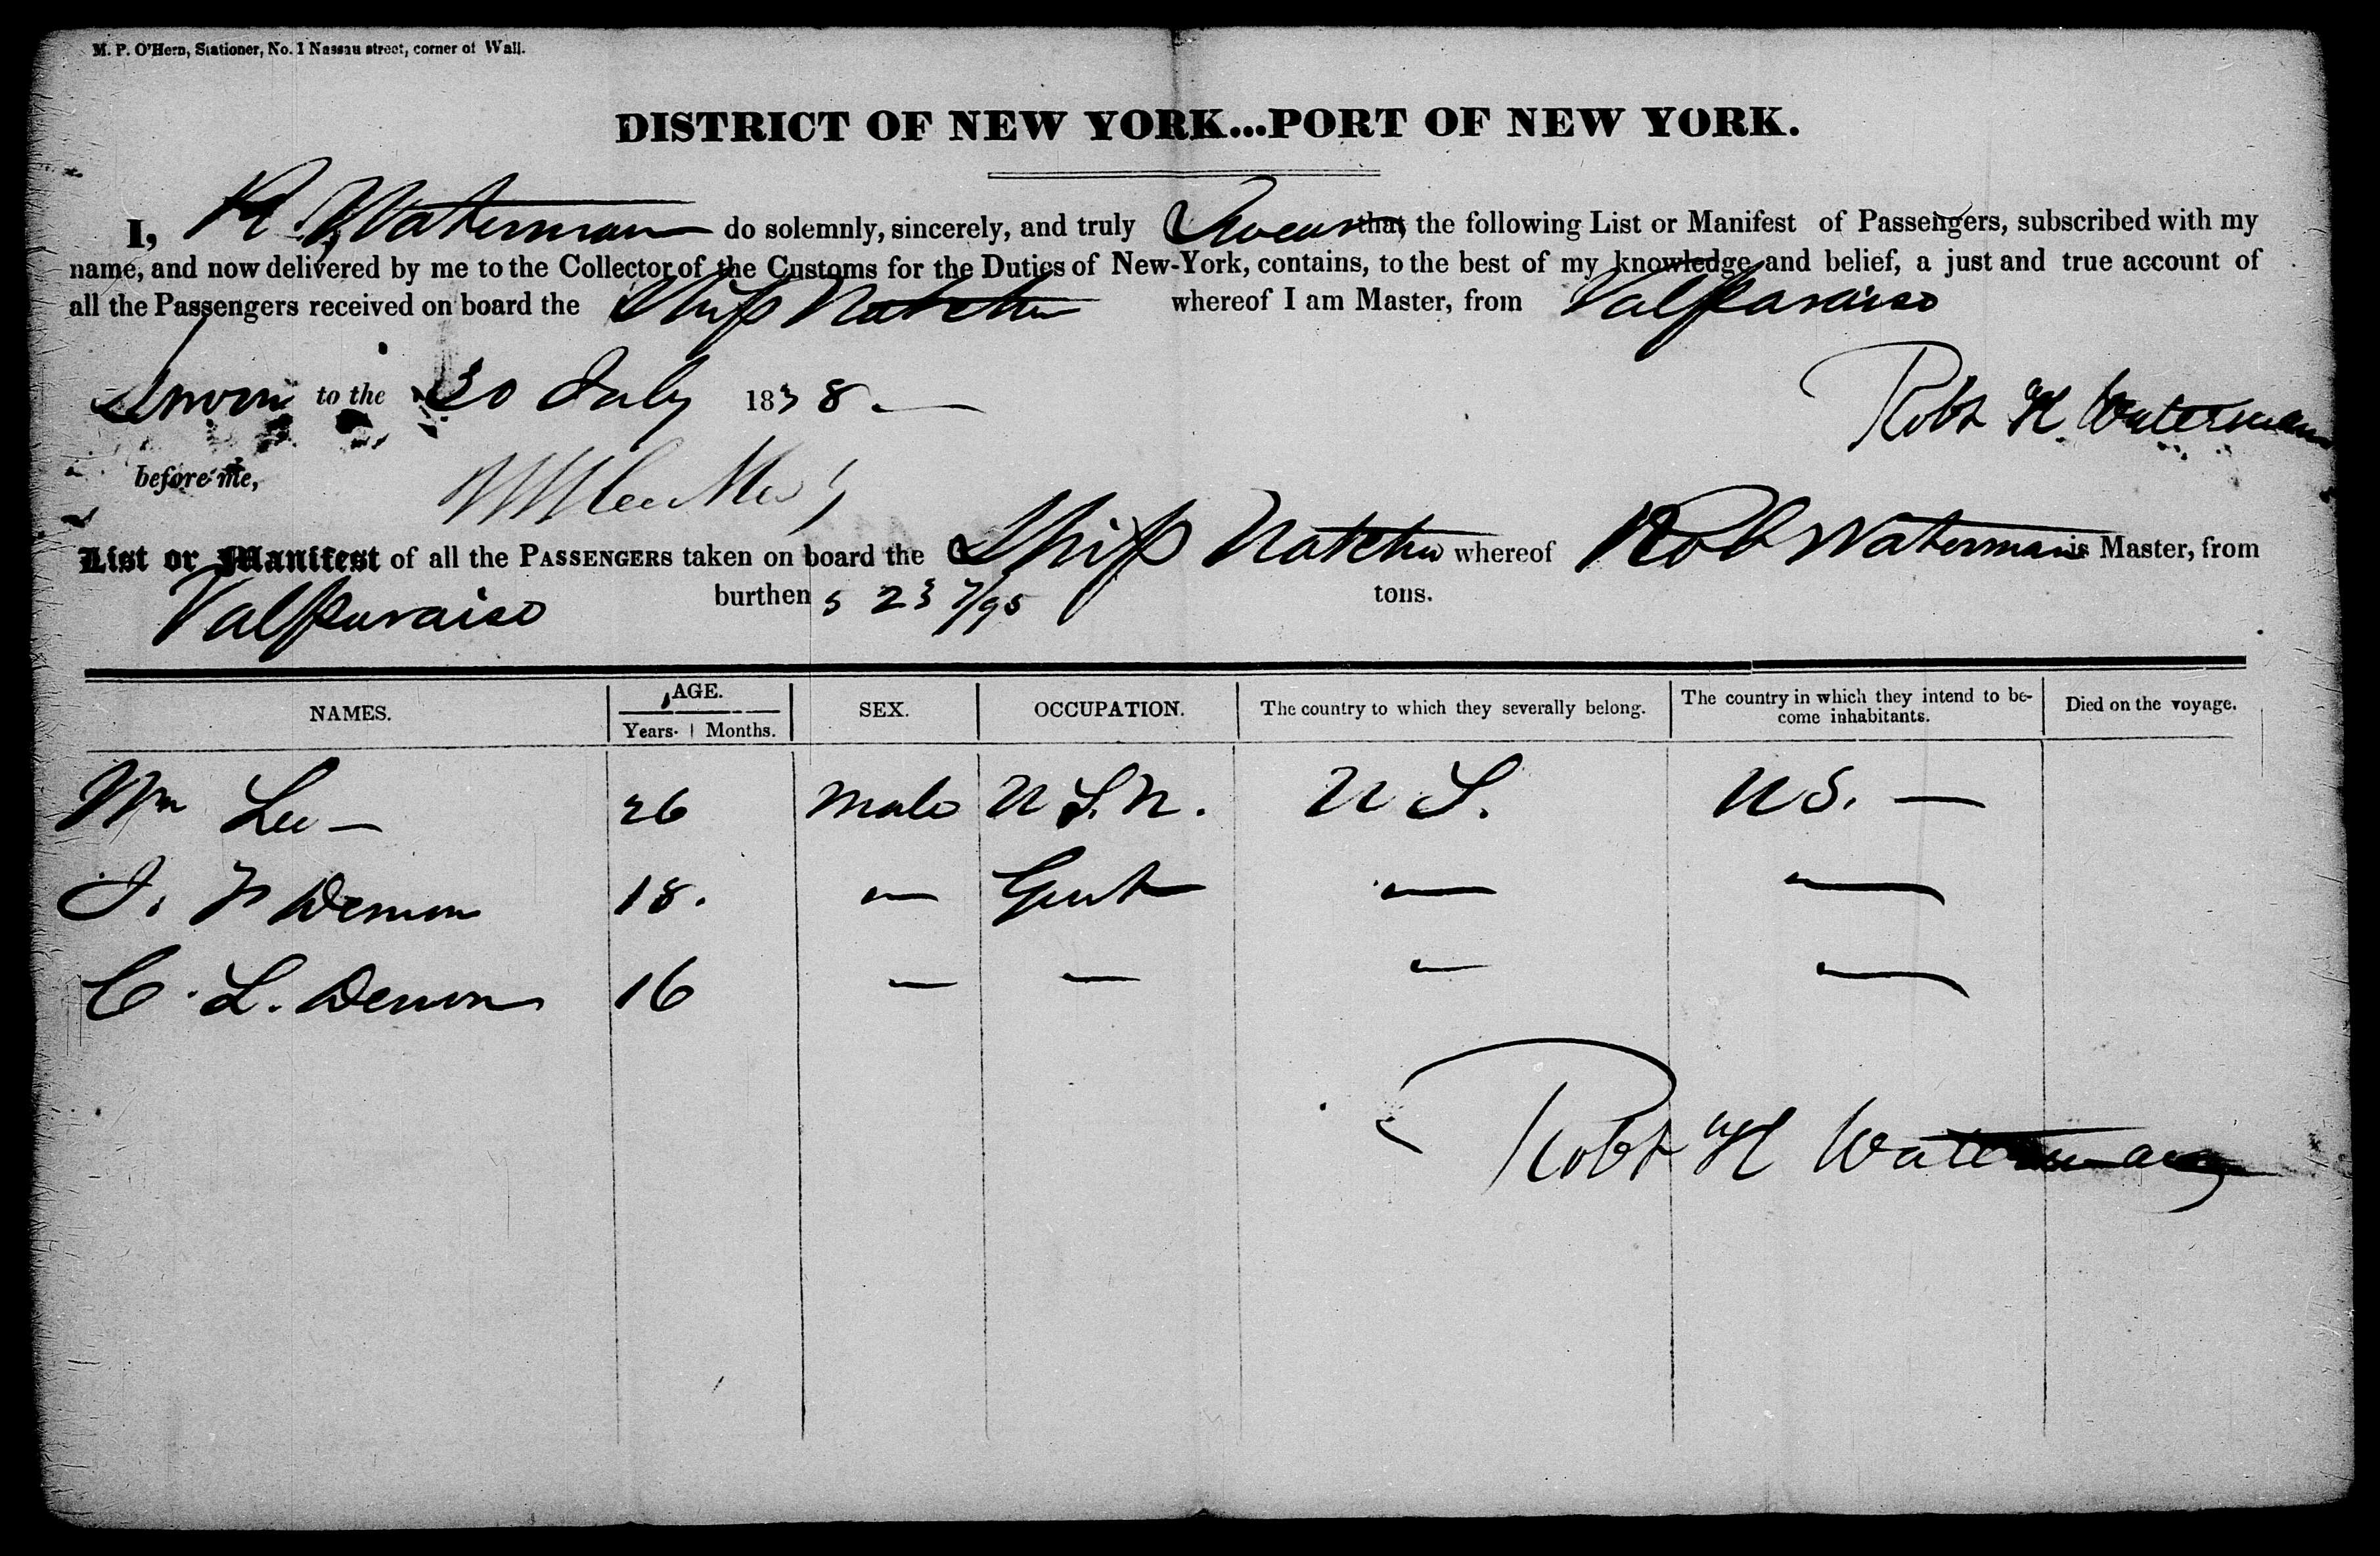 M. P. O'Hern, Stationer, No. 1 Nassau street, corner of Wall.
DISTRICT OF NEW YORK...PORT OF NEW YORK.
I, R. Waterman do solemnly, sincerely, and truly Swear that the following List or Manifest of Passengers, subscribed with my
name, and now delivered by me to the Collector of the Customs for the Duties of New-York, contains, to the best of my knowledge and belief, a just and true account of
all the Passengers received on board the Ship Natchez whereof I am Master, from Valparaiso
Sworn to the 30 July 1838.
Robt H Waterman
before me,
List or Manifest of all the PASSENGERS taken on board the Ship Natchez whereof Rob Waterman is Master, from
Valparaiso burthen 523 7/95 tons.
NAMES. AGE. SEX. OCCUPATION. The country to which they severally belong. The country in which they intend to be- Died on the voyage.
Years. Months. come inhabitants.
Wm Lee — 26 Male U.S.N. U S. U S. —
J. 18. — Gent — —
C. L. 16 — — — —
Robt H Waterman